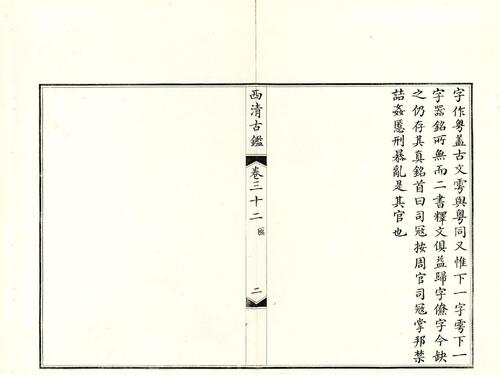 字作粤蓋古文雩與粤同又惟下一字雩下一
字器銘所無而二書釋文俱益歸字僚字今缺
之仍存其真銘首曰司寇按周官司寇掌邦禁
詰姦慝刑暴亂是其官也
西清古鑑
卷三十二
匜
二